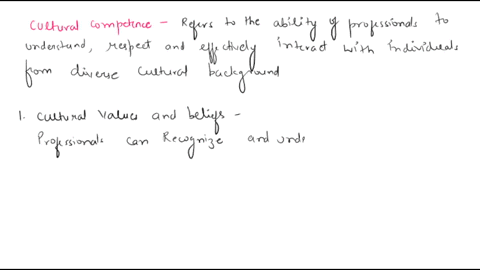 Cultural Competence - Refers to the ability of professionals to
understand, respect and effectively interact with individuals
from diverse cultural background
1. Cultural Values and beliefs -
Professionals can Recognize and unde